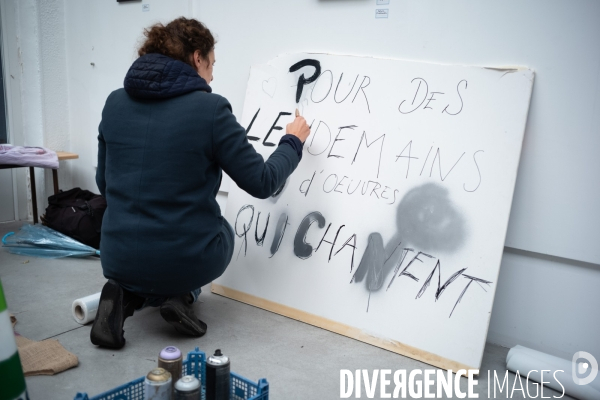 POUR DES
LENDEMAINS
d'OEUVRES
QUI CHANTENT
DIVERGENCE IMAGES